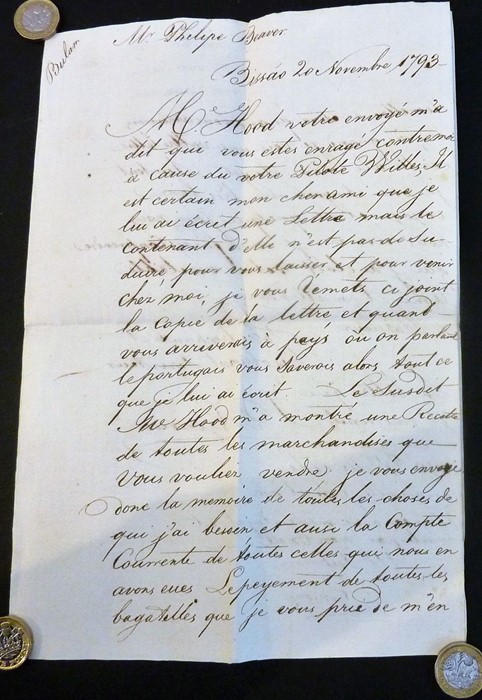 Mr Phelipe Beaver
Bulam
Bissáo 20 Novembre 1793
M. Hood votre envoyé m'a
dit que vous estes enragé contre moi
à cause du votre Pilote Willes. Il
est certain mon cher ami que je
lui ai écrit une Lettre mais le
contenant d'elle n'est pas de Su-
duire pour vous laisser et pour venir
chez moi, je vous remets ci joint
la Capie de la lettre et quand
vous arriverais à pays où on parlant
le portugais vous Saverois alors tout ce
que je lui ai écrit. Le Susdit
Mr. Hood m'a montré une Recette
de toutes les marchandises que
vous vouliez vendre, je vous envoye
donc la memoire de toutes les choses de
qui j'ai besoin et ausi la Compte
Courrente de toutes celles qui nous en
avons eues Le peyement de toutes les
bagatelles que je vous prie de m'en